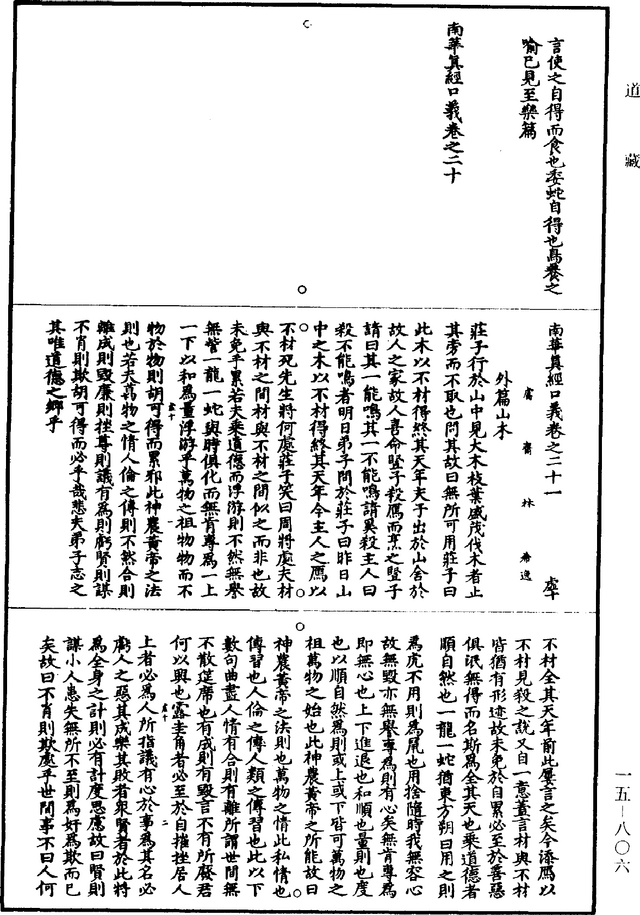 道藏
言使之自得而食也委蛇自得也鳥養之
喻已見至樂篇
南華真經口義卷之二十
南華真經口義卷之二十一
鬳齋林希逸
外篇山木
莊子行於山中見大木枝葉盛茂伐木者止
其旁而不取也問其故曰無所可用莊子曰
此木以不材得終其天年夫子出於山舍於
故人之家故人喜命豎子殺鴈而烹之豎子
請曰其一能鳴其一不能鳴請奚殺主人曰
殺不能鳴者明日弟子問於莊子曰昨日山
中之木以不材得終其天年今主人之鴈以
不材死先生將何處莊子笑曰周將處夫材
與不材之間材與不材之間似之而非也故
未免乎累若夫乘道德而浮游則不然無譽
無訾一龍一蛇與時俱化而無肯專為一上
一下以和為量浮游乎萬物之祖物物而不
物於物則胡可得而累邪此神農黃帝之法
則也若夫萬物之情人倫之傳則不然合則
離成則毀廉則挫尊則議有為則虧賢則謀
不肖則欺胡可得而必乎哉悲夫弟子志之
其唯道德之鄉乎
不材全其天年前此屢言之矣今添鴈以
不材見殺之說又自一意蓋言材與不材
皆猶有形迹故未免於自累必至於善惡
俱泯無得而名斯為全其天也乘道德者
順自然也一龍一蛇猶東方朔曰用之則
為虎不用則為鼠也用捨隨時我無容心
故無毀亦無譽專為則有心矣無肯專為
即無心也上下進退也和順也量則也度
也以順自然為則或上或下皆可萬物之
祖萬物之始也此神農黃帝之所能故曰
神農黃帝之法則也萬物之情此私情也
傳習也人倫之傳人類之傳習也此以下
數句曲盡人情有合則有離所謂世間無
不散筵席也有成則有毀言不有所廢君
何以興也露圭角者必至於自摧挫居人
上者必為人所指議有心於事為其名必
虧人之惡其成樂其敗者衆賢者於此特
為全身之計則必有計度思慮故曰賢則
謀小人患失無所不至則為奸為欺而已
矣故曰不肖則欺處乎世間事不曰人何
一五-八〇六